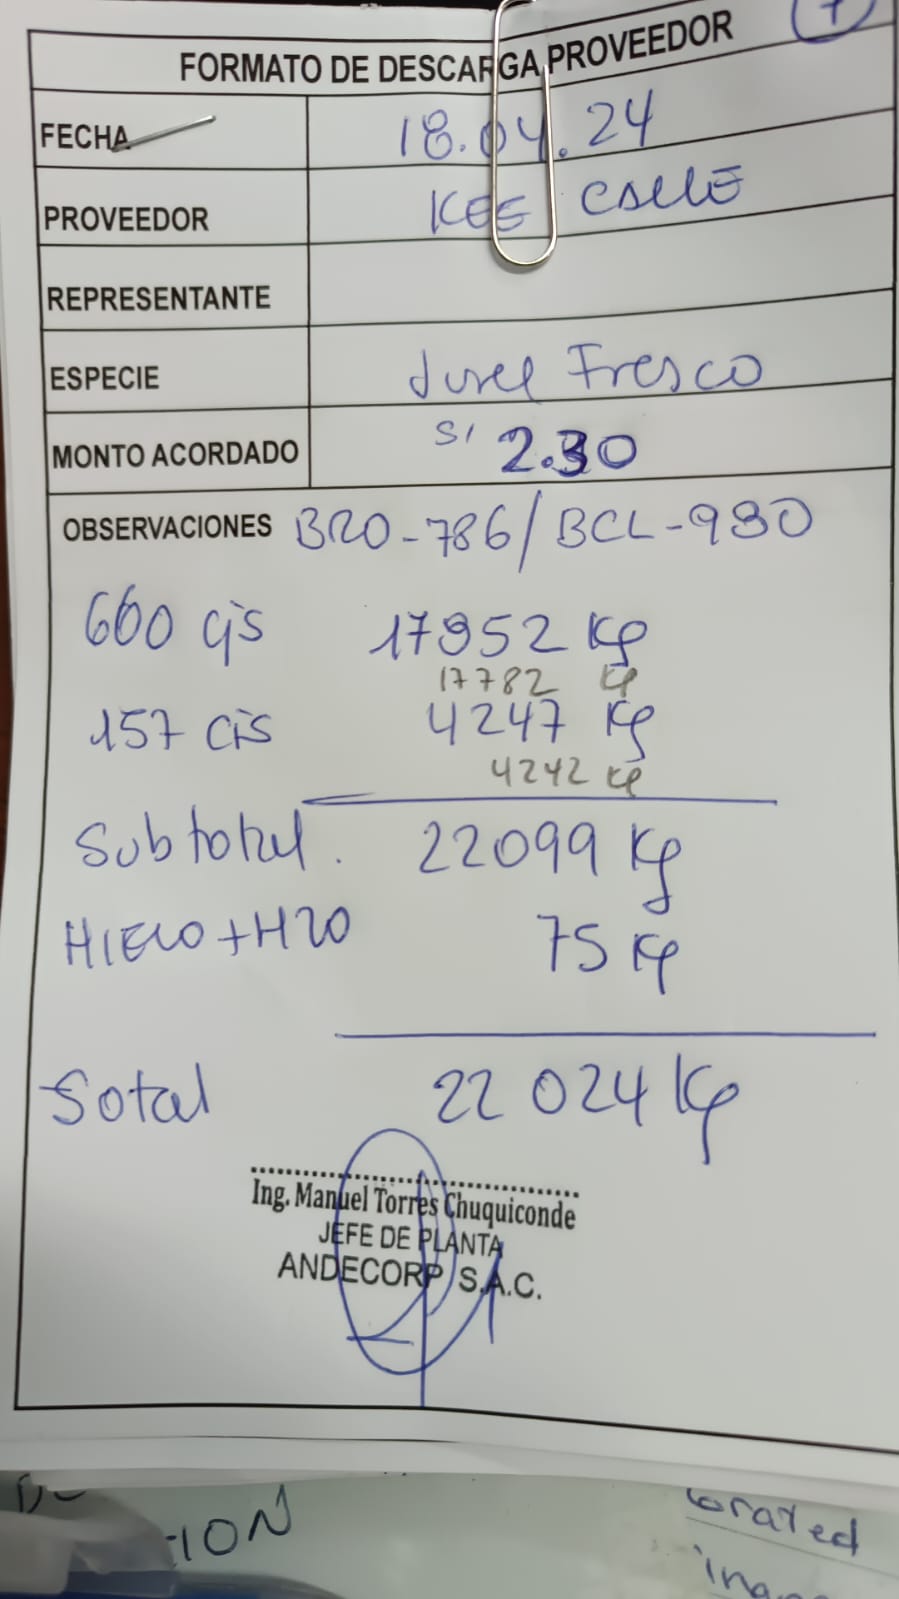 1
FORMATO DE DESCARGA PROVEEDOR
FECHA 18.04.24
PROVEEDOR KEE CALLE
REPRESENTANTE
ESPECIE Jurel Fresco
MONTO ACORDADO S/ 2.30
OBSERVACIONES BRO-786/BCL-930
660 cjs 17852 Kg
17782 Kg
157 cjs 4247 Kg
4242 Kg
Subtotal. 22099 Kg
HIELO+H20 75 Kg
Total 22 024 Kg
Ing. Manuel Torres Chuquiconde
JEFE DE PLANTA
ANDECORP S.A.C.
ION
orated